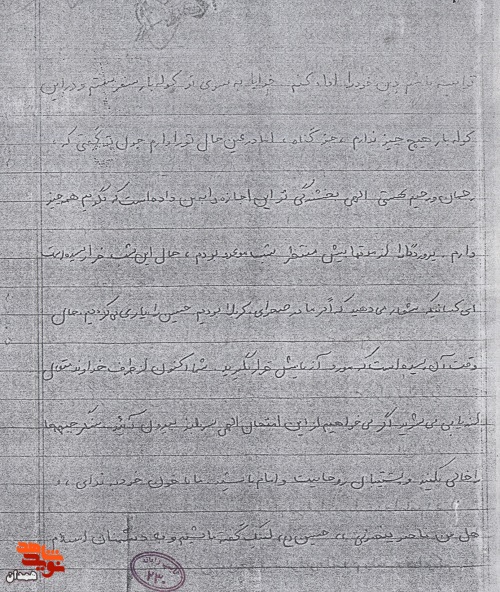 توانسته باشم دین خود را ادا کنم. خدایا به سوی تو کوله بار سفر بستم و در این
کوله بار هیچ چیز ندارم، جز گناه، اما در عین حال تو را دارم چون تو گفتی که
رحمان و رحیم هستی. الهی بخشندگی تو این اجازه را به من داده است که بگویم همه چیز
دارم. پروردگارا از مدتها پیش منتظر شب موعود بودم، حال این شب فرا رسیده است
ای کسانیکه شعار می دهید که اگر ما در صحرای کربلا بودیم حسین را یاری می کردیم. حال
وقت آن رسیده است که مورد آزمایش قرار بگیرید. شما اکنون از طرف خداوند متعال
ارزیابی می شوید. اگر می خواهیم از این امتحان الهی سرافراز بیرون آئید، سنگر جبهه‌ها
را خالی نکنید و پشتیبان روحانیت و امام باشید. تا با خون خود به ندای
هل من ناصر ینصرنی حسین (ع) لبیک گفته باشیم و به دشمنان اسلام
نوید شاهد
همدان